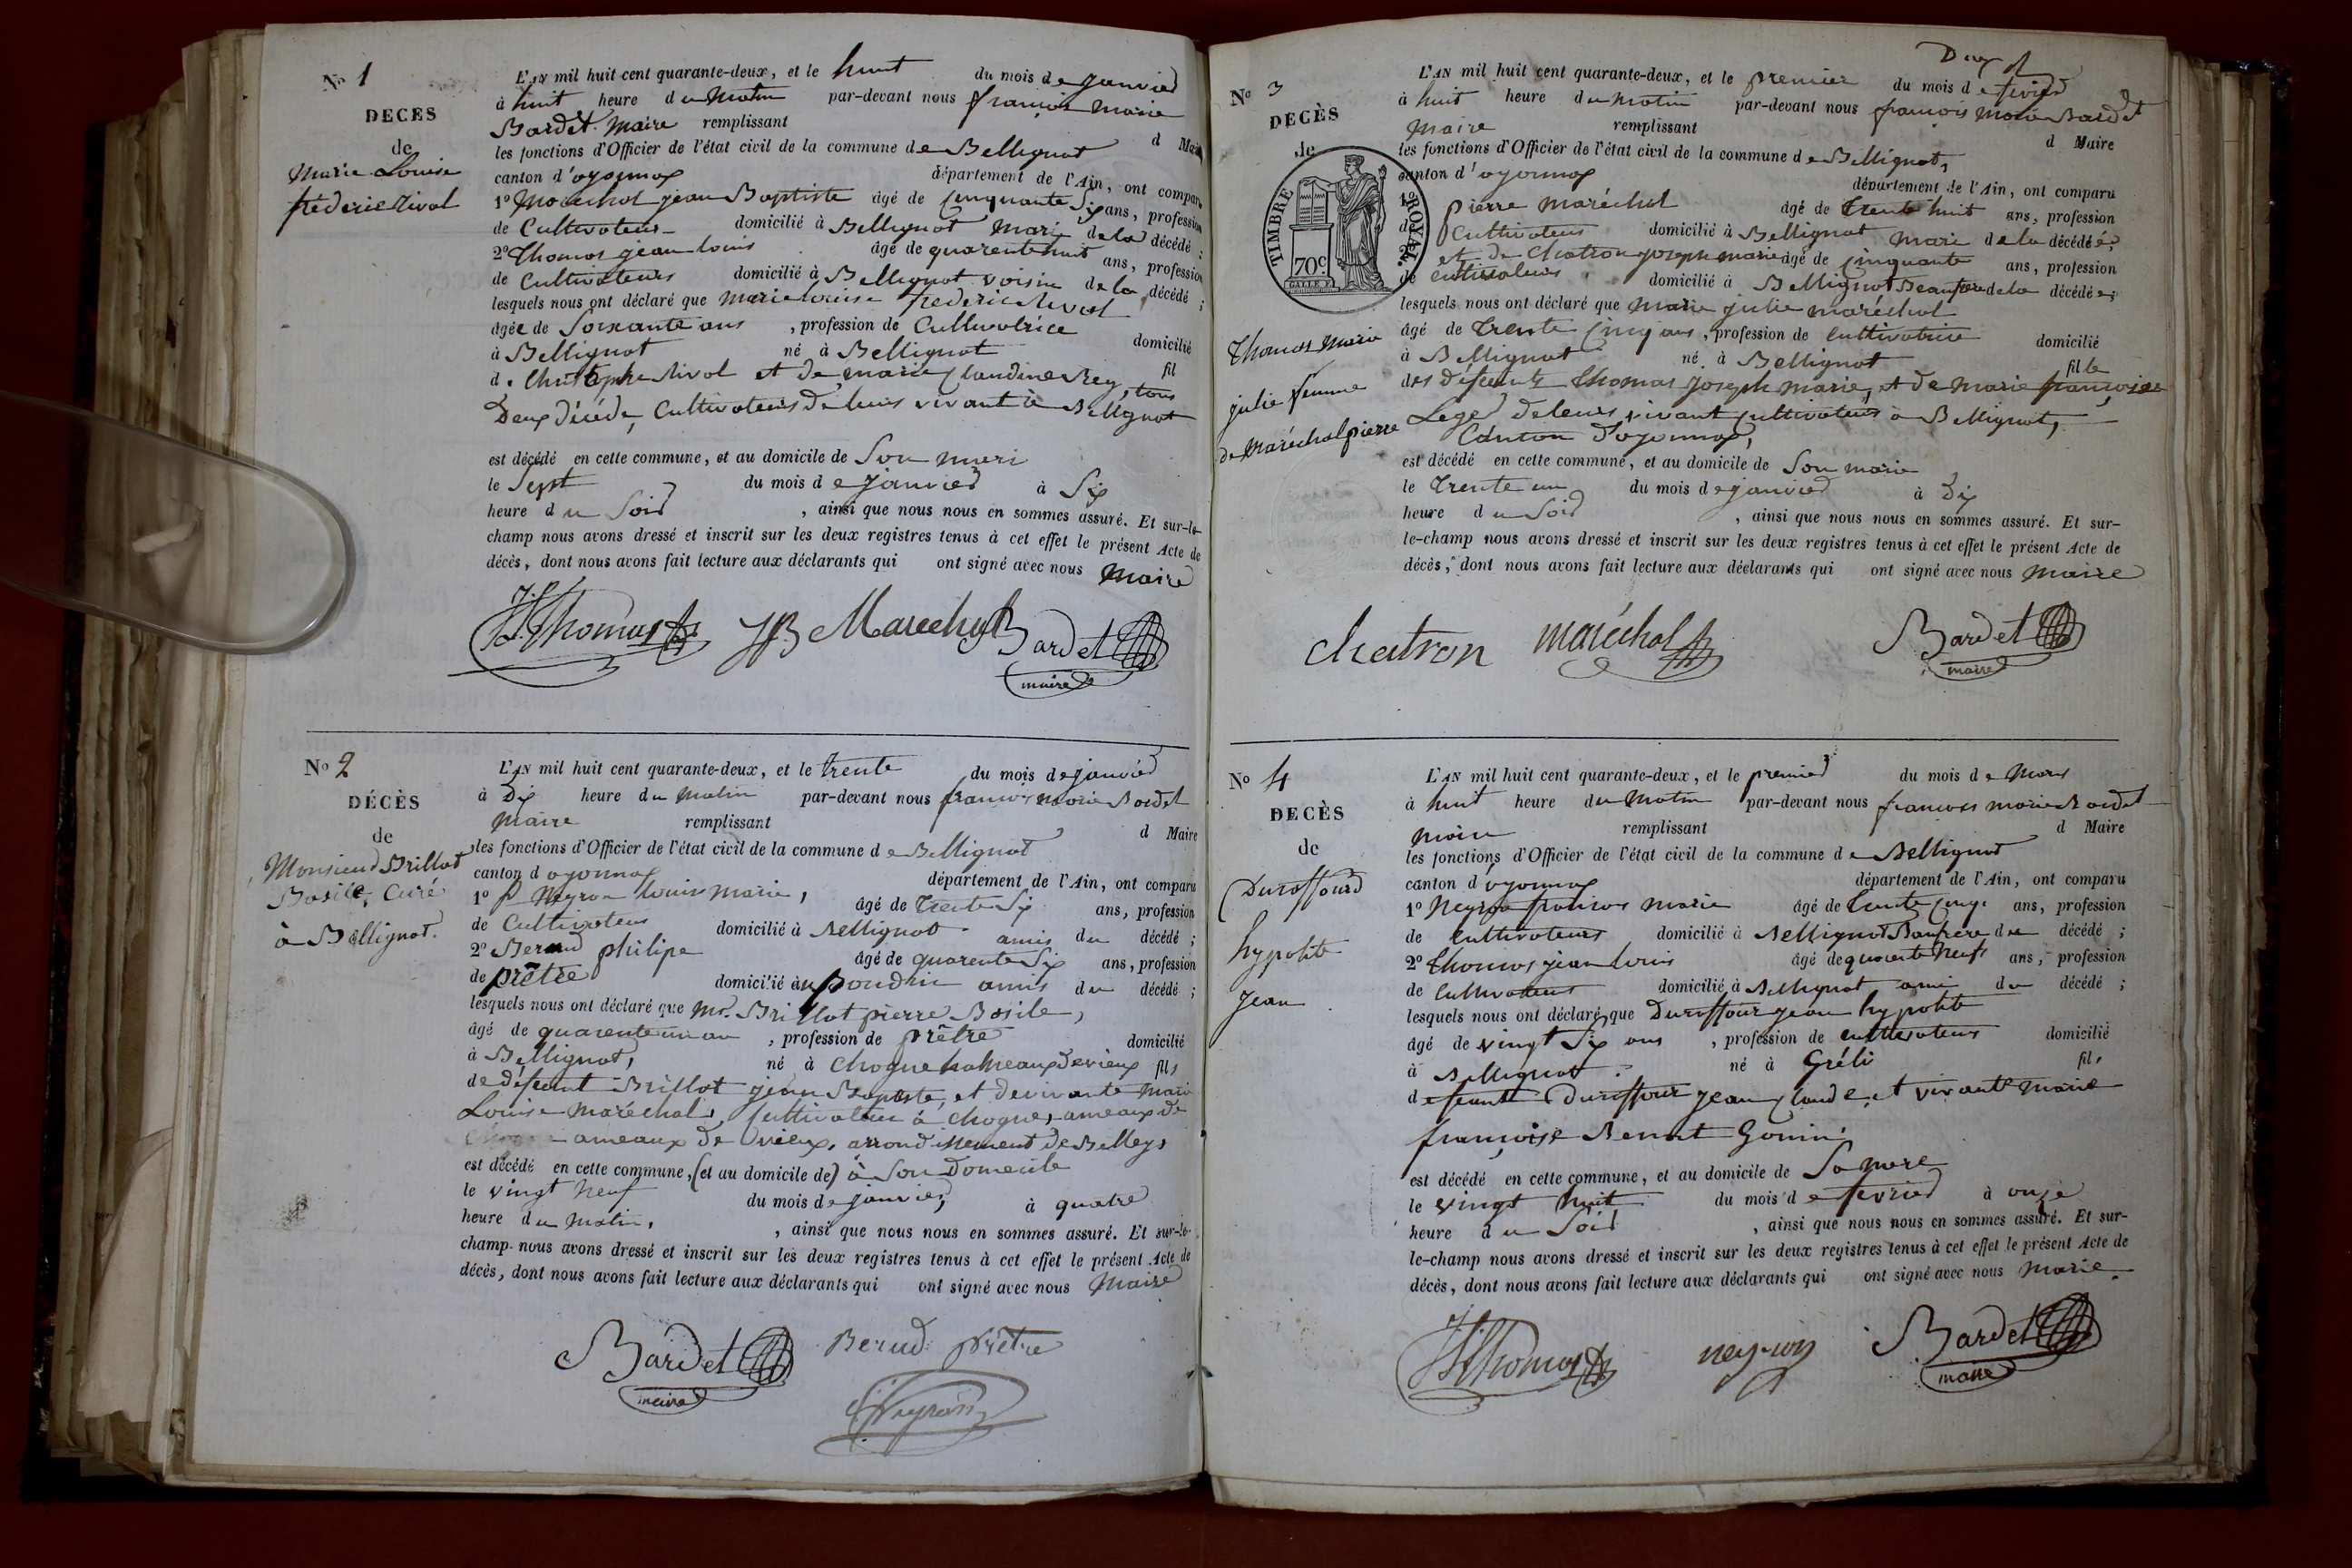 No 1
DECÈS
de
Marie Louise
fréderic Rivol
L'AN mil huit cent quarante-deux, et le huit du mois de janvier
à huit heure du Matin par-devant nous françois Marie
Bardet Maire remplissant d Maire
les fonctions d'Officier de l'état civil de la commune de Bellignat
canton d'oyonnax département de l'Ain, ont comparu
1o Marechal jean Baptiste âgé de Cinquante Six ans, profession
de Cultivateur domicilié à Bellignat Mari de la décédé ;
2o Thomas jean louis âgé de quarente huit ans, profession
de Cultivateurs domicilié à Bellignat voisin de la décédé ;
lesquels nous ont déclaré que Marie louise frederic Rivol
âgée de Soixante ans , profession de Cultivatrice domicilié
à Bellignat né à Bellignat fil
d. Christophe Rivol et de marie Claudine Rey, tous
Deux décédé, Cultivateurs de leurs vivant à Bellignat
est décédé en cette commune, et au domicile de Son mari
le Sept du mois de janvier à Six
heure du Soir , ainsi que nous nous en sommes assuré. Et sur-le-
champ nous avons dressé et inscrit sur les deux registres tenus à cet effet le présent Acte de
décès, dont nous avons fait lecture aux déclarants qui ont signé avec nous Maire
J. L. Thomas JB Marechal Bardet
maire
No 2
DÉCÈS
de
Monsieur Brillat
Basile, Curé
à Bellignat.
L'AN mil huit cent quarante-deux, et le trente du mois de janvier
à Dix heure du Matin par-devant nous francois marie Bardet
Maire remplissant d Maire
les fonctions d'Officier de l'état civil de la commune de Bellignat
canton d oyonnax département de l'Ain, ont comparu
1o Neyron louis marie, âgé de trente Six ans, profession
de Cultivateur domicilié à Bellignat amis du décédé ;
2o Beraud philipe âgé de quarente Six ans, profession
de prêtre domicilié à amis du décédé ;
lesquels nous ont déclaré que Mr. Brillat pierre Basile,
âgé de quarente un an , profession de prêtre domicilié
à Bellignat, né à Chogne hameaux Devieux fils
de defeunt Brillat jean Baptiste, et de vivante Marie
Louise Maréchal, Cultivateur à Chogne, ameaux de
ameaux de Ovieux, arrondissement de Belleys
est décédé en cette commune, (et au domicile de) à Son Domecile
le vingt neuf du mois de janvier, à quatre
heure du Matin, , ainsi que nous nous en sommes assuré. Et sur-le-
champ nous avons dressé et inscrit sur les deux registres tenus à cet effet le présent Acte de
décès, dont nous avons fait lecture aux déclarants qui ont signé avec nous Maire
Bardet Berud prêtre
maire Neyron
No 3
DECÈS
de
TIMBRE ROYAL
70c
Thomas Marie
julie femme
de Maréchal pierre
L'AN mil huit cent quarante-deux, et le premier du mois de fevrier
à huit heure du Matin par-devant nous françois Marie Bardet
Maire remplissant d Maire
les fonctions d'Officier de l'état civil de la commune de Bellignat,
canton d'oyonnax département de l'Ain, ont comparu
1o pierre Maréchal âgé de trente huit ans, profession
de Cultivateur domicilié à Bellignat Mari de la décédée ;
et de Chatron joseph marie âgé de cinquante ans, profession
de cultivateur domicilié à Bellignat Beaufrere de la décédée ;
lesquels nous ont déclaré que Marie julie maréchal
âgé de trente Cinq ans, profession de Cultivatrice domicilié
à Bellignat né à Bellignat fille
des défeunts Thomas joseph Marie, et de Marie françoise
Leger de leurs vivant Cultivateurs à Bellignat,
Canton d'oyonnax,
est décédé en cette commune, et au domicile de Son marie
le trente un du mois de janvier à Dix
heure du Soir , ainsi que nous nous en sommes assuré. Et sur-
le-champ nous avons dressé et inscrit sur les deux registres tenus à cet effet le présent Acte de
décès, dont nous avons fait lecture aux déclarants qui ont signé avec nous Maire
Chatron Maréchal Bardet
maire
No 4
DECÈS
de
Duraffourd
hypolite
Jean
L'AN mil huit cent quarante-deux, et le premier du mois de Mars
à huit heure du Matin par-devant nous francois marie Bardet
maire remplissant d Maire
les fonctions d'Officier de l'état civil de la commune de Bellignat
canton d'oyonnax département de l'Ain, ont comparu
1o Neyron francois Marie âgé de trente Cinq ans, profession
de Cultivateurs domicilié à Bellignat Baufrere du décédé ;
2o Thomas jean louis âgé de quarente Neuf ans, profession
de Cultivateurs domicilié à Bellignat ami du décédé ;
lesquels nous ont déclaré que Duraffour jean hypolite
âgé de vingt Six ans , profession de cultivateurs domicilié
à Bellignat né à fils
defeunt Duraffour jean Claude, et vivante Marie
françoise Benoit Gonin
est décédé en cette commune, et au domicile de Sa mere
le vingt huit du mois de fevrier à onze
heure du Soir , ainsi que nous nous en sommes assuré. Et sur-
le-champ nous avons dressé et inscrit sur les deux registres tenus à cet effet le présent Acte de
décès, dont nous avons fait lecture aux déclarants qui ont signé avec nous Marie.
J L Thomas neyron Bardet
maire